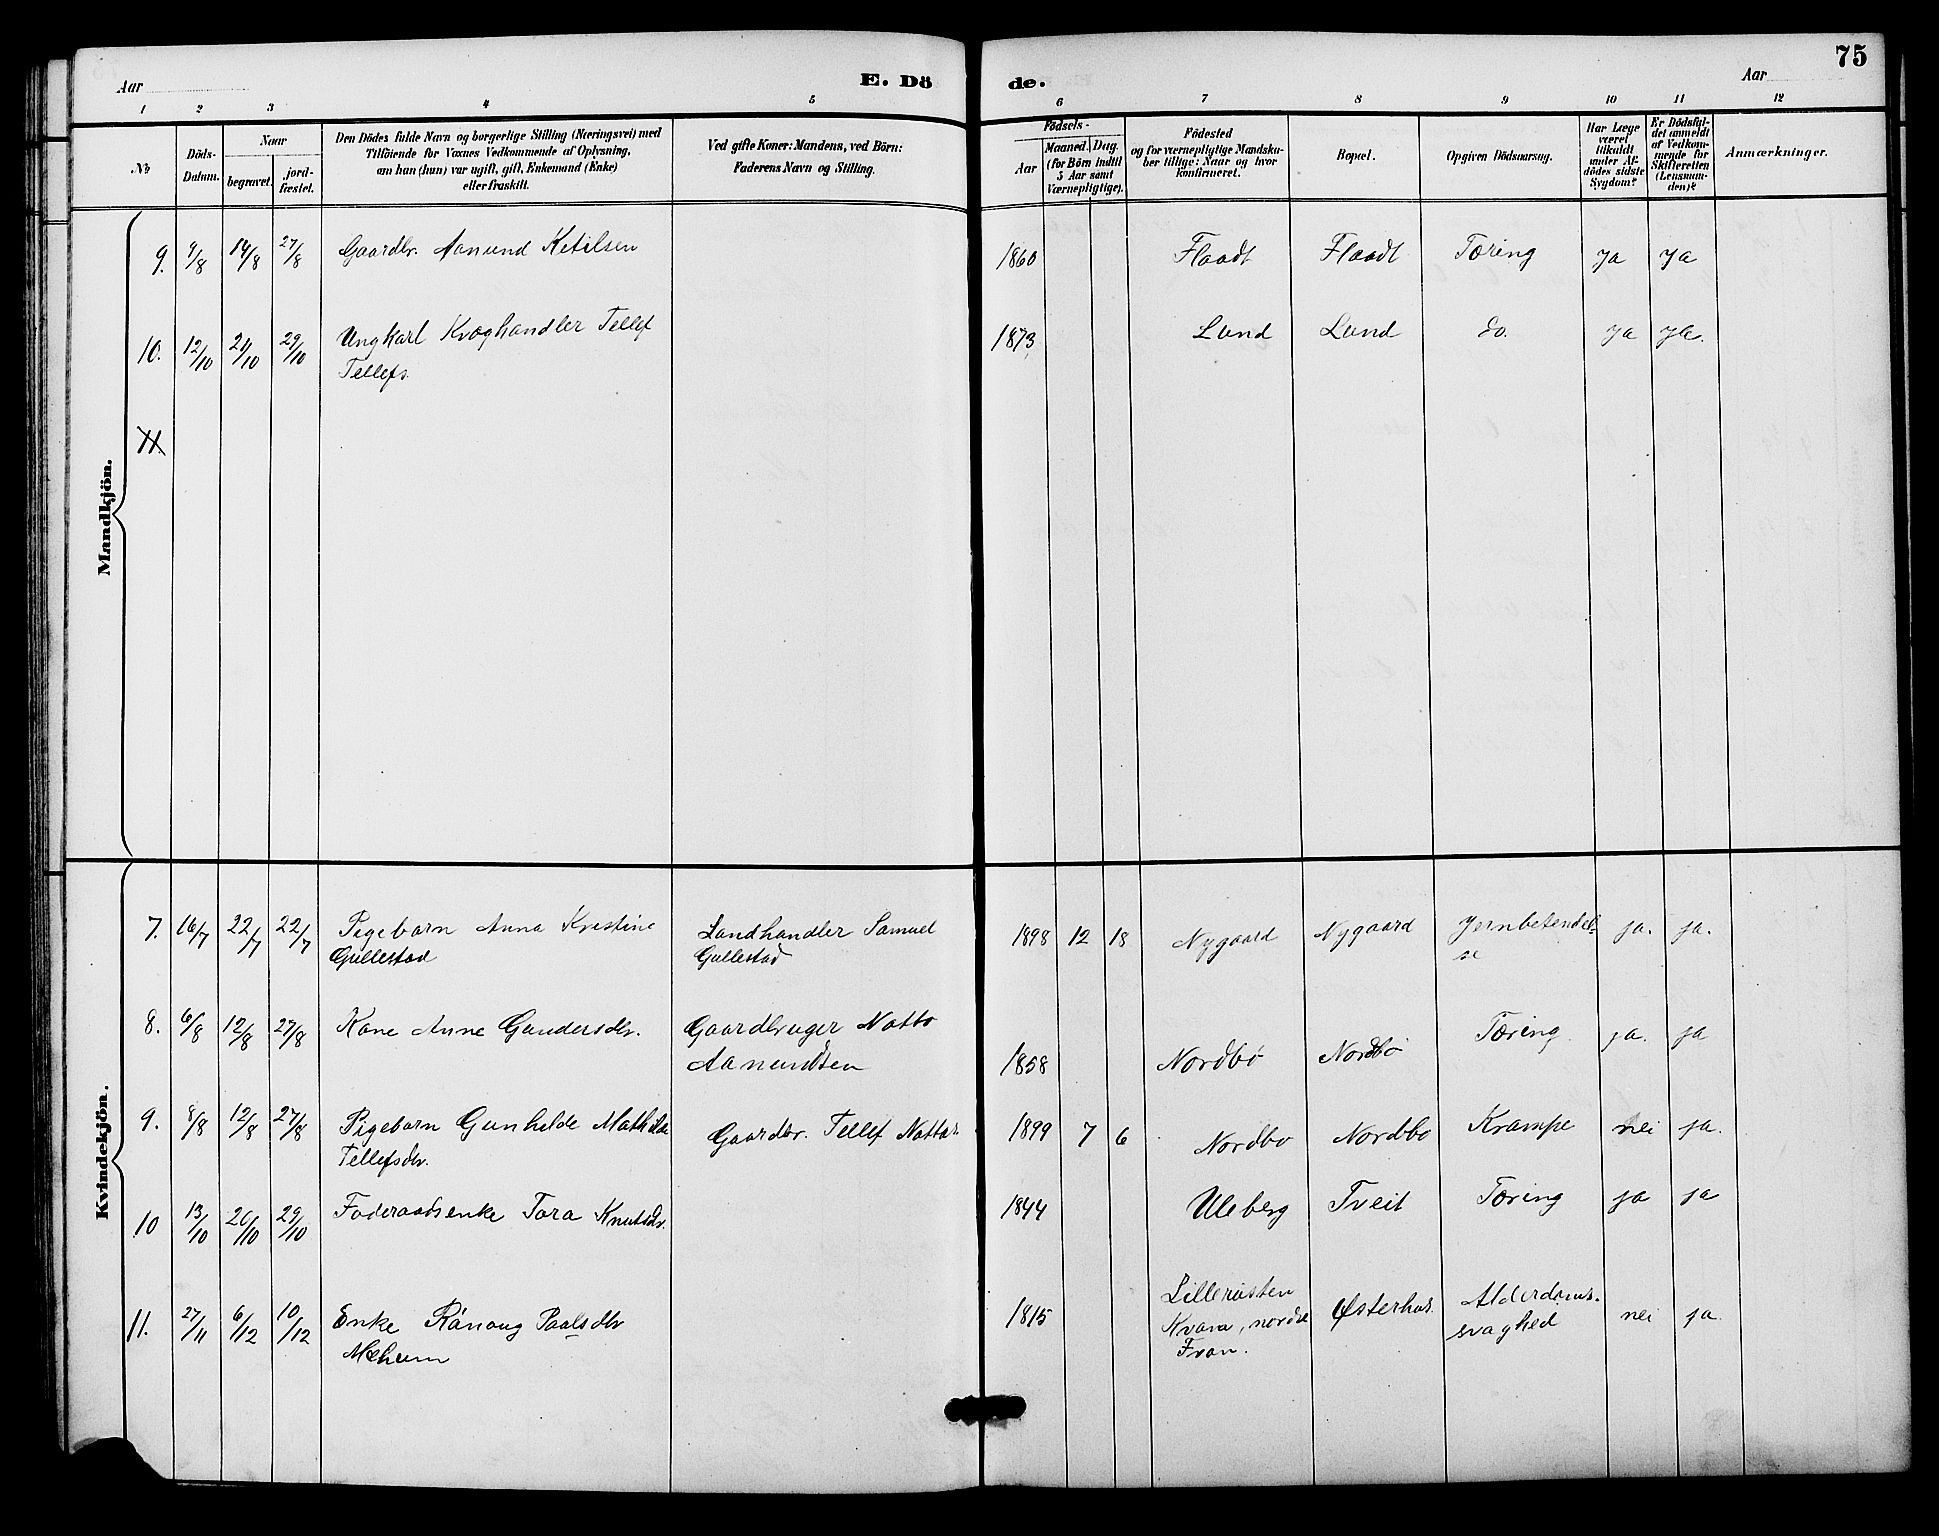 75
Aar
E. Dö
de.
Aar
1 2 3 4 5 6 7 8 9 10 11 12
No
Döds-
Datum.
Naar
begravet.
jord-
fæstet.
Den Dödes fulde Navn og borgerlige Stilling (Næringsvei) med
Tilföiende for Voxnes Vedkommende af Oplysning,
om han (hun) var ugift, gift, Enkemand (Enke)
eller fraskilt.
Ved gifte Koner: Mandens, ved Börn:
Faderens Navn og Stilling.
Födsels-
Aar
Maaned. Dag.
(for Börn indtil
5 Aar samt
Værnepligtige).
Födested
og for værnepligtige Mandska-
ber tillige: Naar og hvor
konfirmeret.
Bopæl.
Opgiven Dödsaarsag.
Har Læge
været
tilkaldt
under Af-
dödes sidste
Sygdom?
Er Dödsfal-
det anmeldt
af Vedkom-
mende for
Skifteretten
(Lensman-
den)?
Anmærkninger.
Mandkjön.
9. 9/8 14/8 27/8 Gaardbr. Aanund Ketilsen 1860 Flaadt Flaadt Tæring ja ja
10. 12/10 21/10 29/10 Ungkarl Kvæghandler Tellef 1873 Lund Lund do. ja ja.
Tellefs.
11.
Kvindekjön.
7. 16/7 22/7 22/7 Pigebarn Anna Kristine Landhandler Samuel 1898 12 18 Nygaard Nygaard Hjernbetændel- ja. ja.
Gullestad Gullestad se
8. 6/8 12/8 27/8 Kone Anne Gundersdtr. Gaardbruger Notto 1858 Nordbö Nordbö Tæring ja. ja
Aanundsen
9. 8/8 12/8 27/8 Pigebarn Gunhilde Mathilde Gaardbr. Tellef Nottos. 1899 7 6 Nordbo Nordbo Krampe nei ja.
Tellefsdtr.
10 13/10 20/10 29/10 Föderaadsenke Tora Knutsdtr. 1844 Uleberg Tveit Tæring ja ja
11. 27/11 6/12 10/12 Enke Rånaug Paalsdtr 1815 Lillerusten Østerhus. Alderdoms- nei ja.
Mæhum Kvara, nordre svaghed